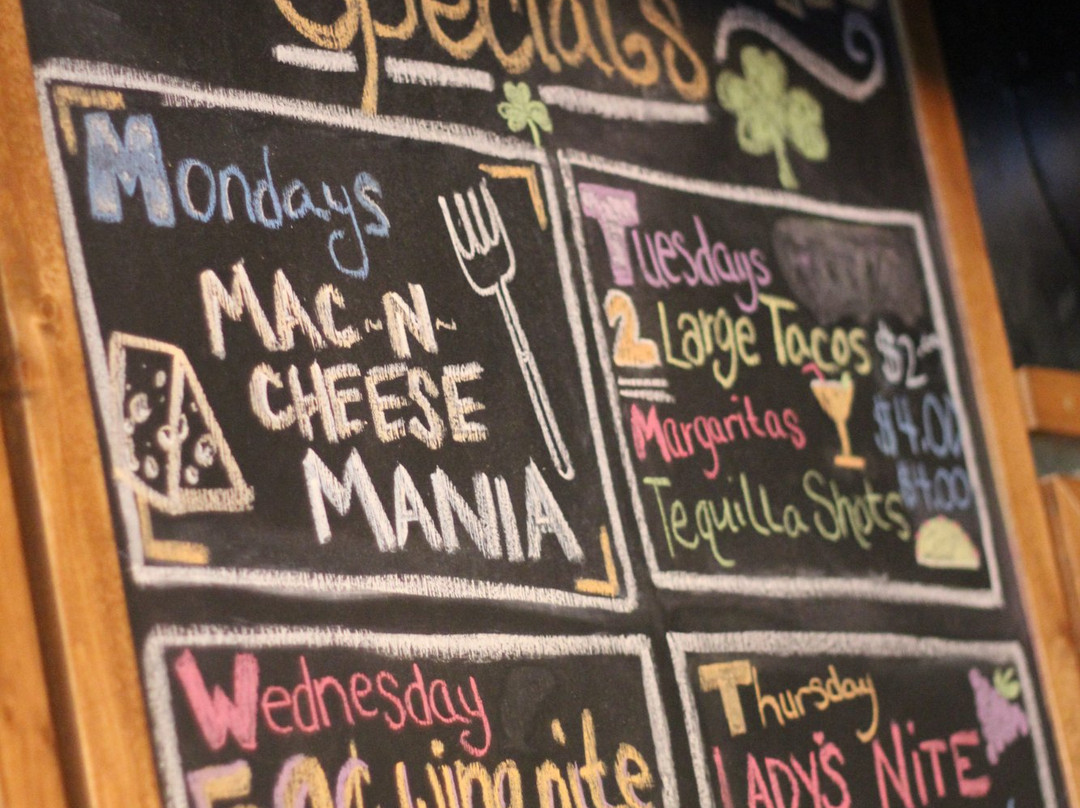 Specials
Mondays
MAC-N-
CHEESE
MANIA
Tuesdays
2 Large Tacos $2
Margaritas $4.00
Tequilla Shots $4.00
Wednesday
50¢ wing nite
Thursday
LADY'S NITE